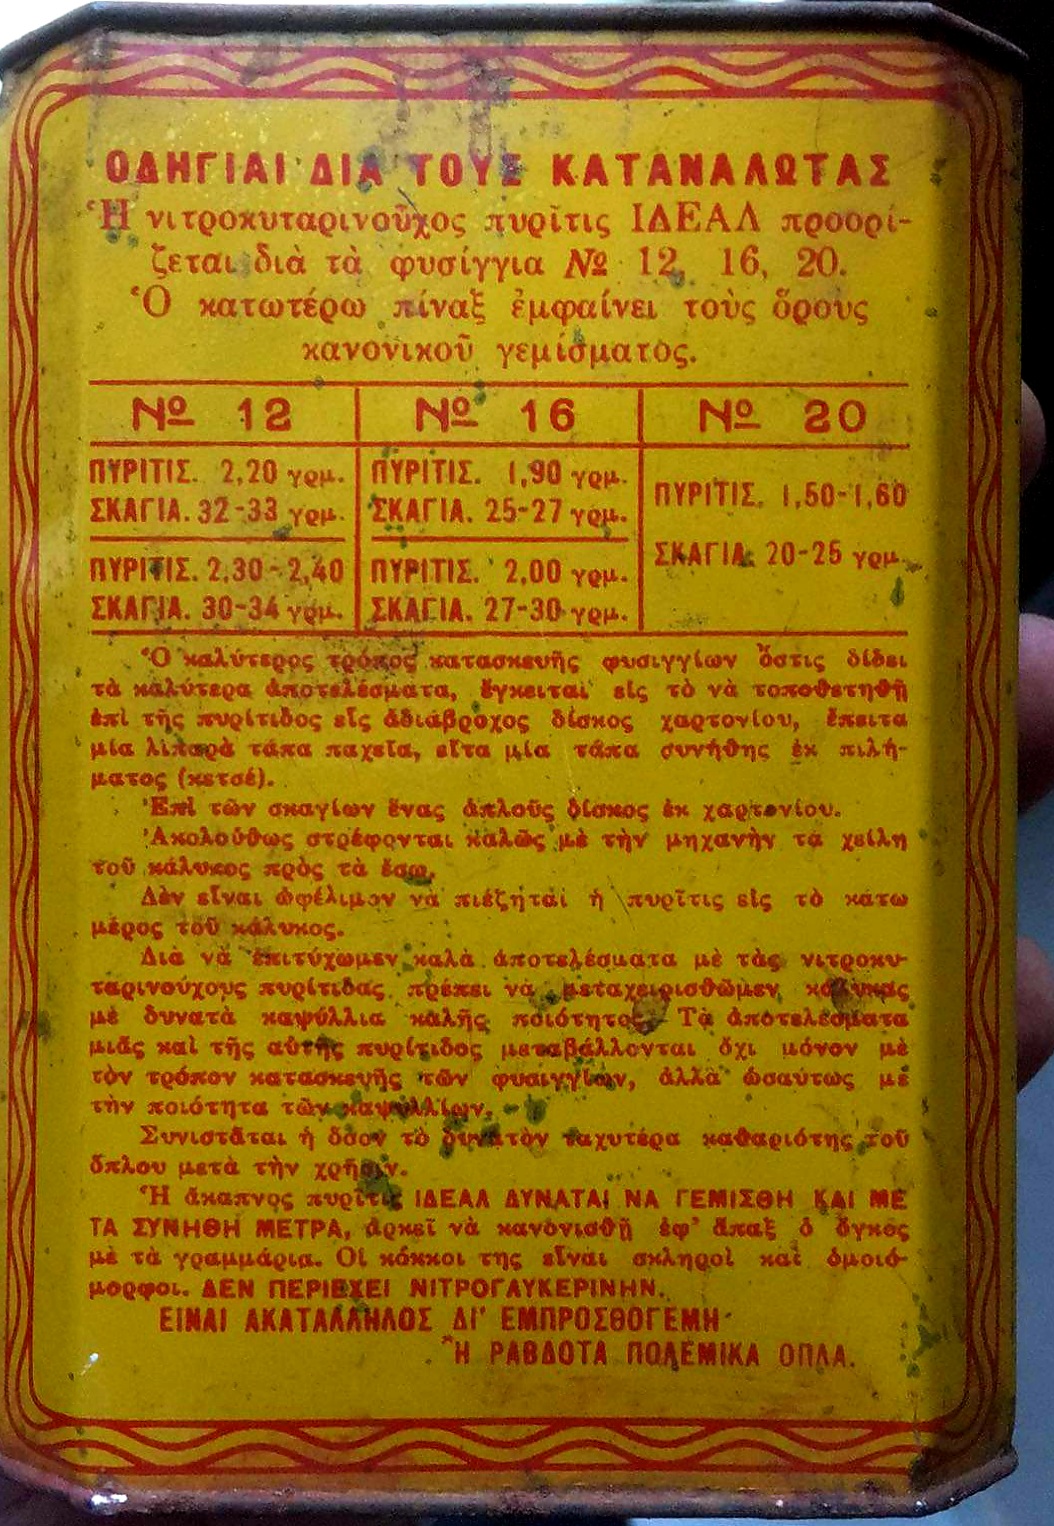 ΟΔΗΓΙΑΙ ΔΙΑ ΤΟΥΣ ΚΑΤΑΝΑΛΩΤΑΣ
Ἡ νιτροκυταρινοῦχος πυρῖτις ΙΔΕΑΛ προορί-
ζεται διὰ τὰ φυσίγγια № 12, 16, 20.
Ὁ κατωτέρω πίναξ ἐμφαίνει τοὺς ὅρους
κανονικοῦ γεμίσματος.
№ 12 № 16 № 20
ΠΥΡΙΤΙΣ. 2,20 γρμ. ΠΥΡΙΤΙΣ. 1,90 γρμ.
ΠΥΡΙΤΙΣ. 1,50-1,60
ΣΚΑΓΙΑ. 32-33 γρμ. ΣΚΑΓΙΑ. 25-27 γρμ.
ΣΚΑΓΙΑ. 20-25 γρμ.
ΠΥΡΙΤΙΣ. 2,30-2,40 ΠΥΡΙΤΙΣ. 2,00 γρμ.
ΣΚΑΓΙΑ. 30-34 γρμ. ΣΚΑΓΙΑ. 27-30 γρμ.
Ὁ καλύτερος τρόπος κατασκευῆς φυσιγγίων ὅστις δίδει
τὰ καλύτερα ἀποτελέσματα, ἔγκειται εἰς τὸ νὰ τοποθετηθῇ
ἐπὶ τῆς πυρίτιδος εἷς ἀδιάβροχος δίσκος χαρτονίου, ἔπειτα
μία λιπαρὰ τάπα παχεῖα, εἶτα μία τάπα συνήθης ἐκ πιλή-
ματος (κετσέ).
Ἐπὶ τῶν σκαγίων ἕνας ἁπλοῦς δίσκος ἐκ χαρτονίου.
Ἀκολούθως στρέφονται καλῶς μὲ τὴν μηχανὴν τὰ χείλη
τοῦ κάλυκος πρὸς τὰ ἔσω.
Δὲν εἶναι ὠφέλιμον νὰ πιέζηται ἡ πυρῖτις εἰς τὸ κάτω
μέρος τοῦ κάλυκος.
Διὰ νὰ ἐπιτύχωμεν καλὰ ἀποτελέσματα μὲ τὰς νιτροκυ-
ταρινούχους πυρίτιδας πρέπει νὰ μεταχειρισθῶμεν κάλυκας
μὲ δυνατὰ καψύλλια καλῆς ποιότητος. Τὰ ἀποτελέσματα
μιᾶς καὶ τῆς αὐτῆς πυρίτιδος μεταβάλλονται ὄχι μόνον μὲ
τὸν τρόπον κατασκευῆς τῶν φυσιγγίων, ἀλλὰ ὡσαύτως μὲ
τὴν ποιότητα τῶν καψυλλίων.
Συνιστᾶται ἡ ὅσον τὸ δυνατὸν ταχυτέρα καθαριότης τοῦ
ὅπλου μετὰ τὴν χρῆσιν.
Ἡ ἄκαπνος πυρῖτις ΙΔΕΑΛ ΔΥΝΑΤΑΙ ΝΑ ΓΕΜΙΣΘΗ ΚΑΙ ΜΕ
ΤΑ ΣΥΝΗΘΗ ΜΕΤΡΑ, ἀρκεῖ νὰ κανονισθῇ ἐφ' ἅπαξ ὁ ὄγκος
μὲ τὰ γραμμάρια. Οἱ κόκκοι της εἶναι σκληροὶ καὶ ὁμοιό-
μορφοι. ΔΕΝ ΠΕΡΙΕΧΕΙ ΝΙΤΡΟΓΛΥΚΕΡΙΝΗΝ.
ΕΙΝΑΙ ΑΚΑΤΑΛΛΗΛΟΣ ΔΙ' ΕΜΠΡΟΣΘΟΓΕΜΗ
Ἢ ΡΑΒΔΟΤΑ ΠΟΛΕΜΙΚΑ ΟΠΛΑ.